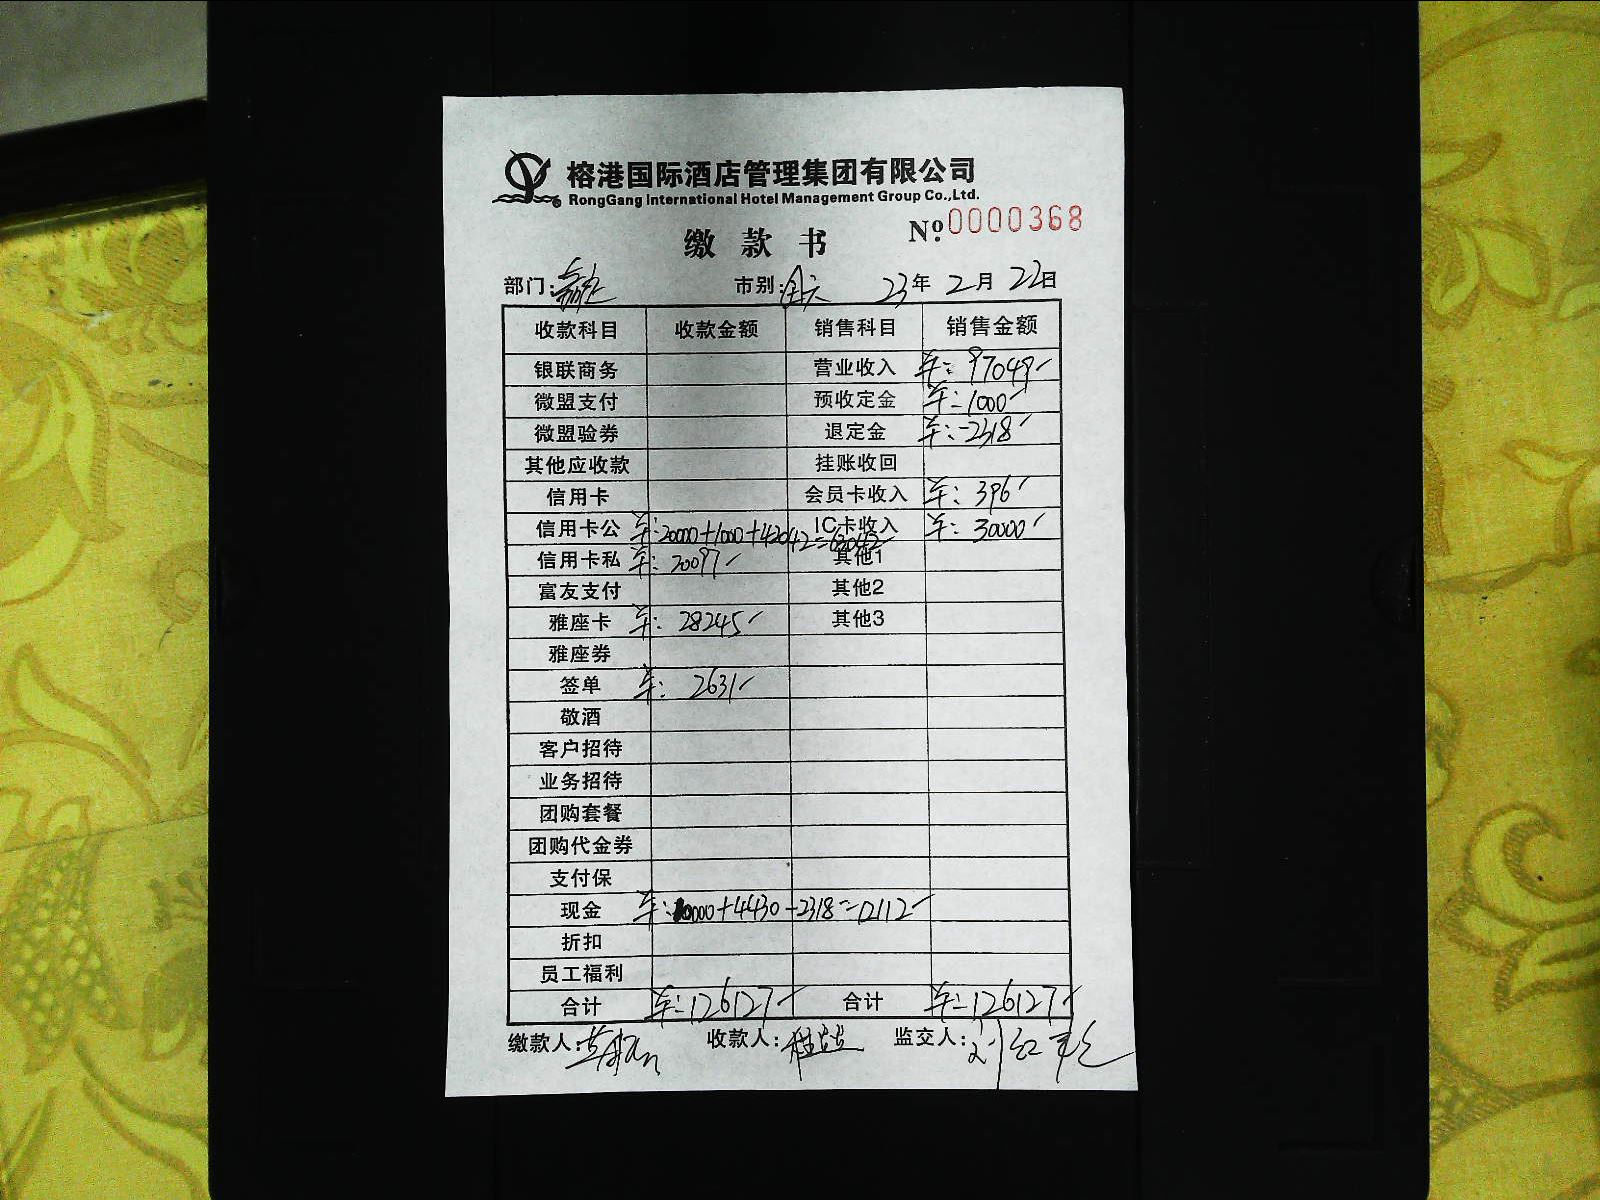 榕港国际酒店管理集团有限公司
RongGang International Hotel Management Group Co.,Ltd.
缴款书 No. 0000368
部门: 市别: 23年2月22日
收款科目 收款金额 销售科目 销售金额
银联商务 营业收入 车: 97049
微盟支付 预收定金 车: 1000
微盟验券 退定金 车: -2318
其他应收款 挂账收回
信用卡 会员卡收入 车: 396
信用卡公 车: 20000+1000+42042=63042 IC卡收入 车: 30000
信用卡私 车: 20097 其他1
富友支付 其他2
雅座卡 车: 28245 其他3
雅座券
签单 车: 2631
敬酒
客户招待
业务招待
团购套餐
团购代金券
支付保
现金 车: 10000+4430-2318=12112
折扣
员工福利
合计 车: 126127 合计 车: 126127
缴款人: 收款人: 监交人: